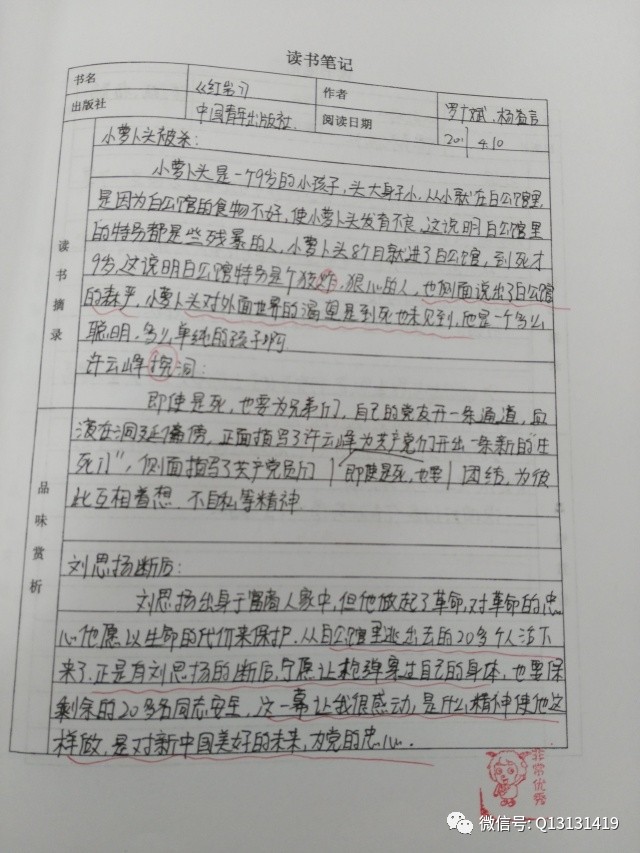 读书笔记
书名 《红岩》 作者 罗广斌、杨益言
出版社 中国青年出版社 阅读日期 201 4.10
读书摘录
小萝卜头被杀：
小萝卜头是一个9岁的小孩子，头大身子小，从小就在白公馆里，
是因为白公馆的食物不好，使小萝卜头发育不良，这说明白公馆里
的特务都是些残暴的人，小萝卜头8个月就进了白公馆，到死才
9岁，这说明白公馆特务是个狡炸，狠心的人，也侧面说出了白公馆
的森严，小萝卜头对外面世界的渴望是到死也未见到，他是一个多么
聪明，多么单纯的孩子啊
许云峰挖洞：
即使是死，也要为兄弟们，自己的党友开一条通道，血
滴在洞
正面描写了许云峰为共产党们开出一条新的“生
死门”，侧面描写了共产党员们 即使是死，也要 团结，为彼
此互相着想 不自私等精神
品味赏析
刘思扬断后：
刘思扬出身于富商人家中，但他做起了革命，对革命的忠
心他愿以生命的代价来保护，从白公馆里逃出去的20多个人活下
来了，正是有刘思扬的断后，宁愿让枪弹穿过自己的身体，也要保
剩余的20多名同志安全，这一幕让我很感动，是什么精神使他这
样做，是对新中国美好的未来，为党的忠心．
非常优秀
微信号: Q13131419